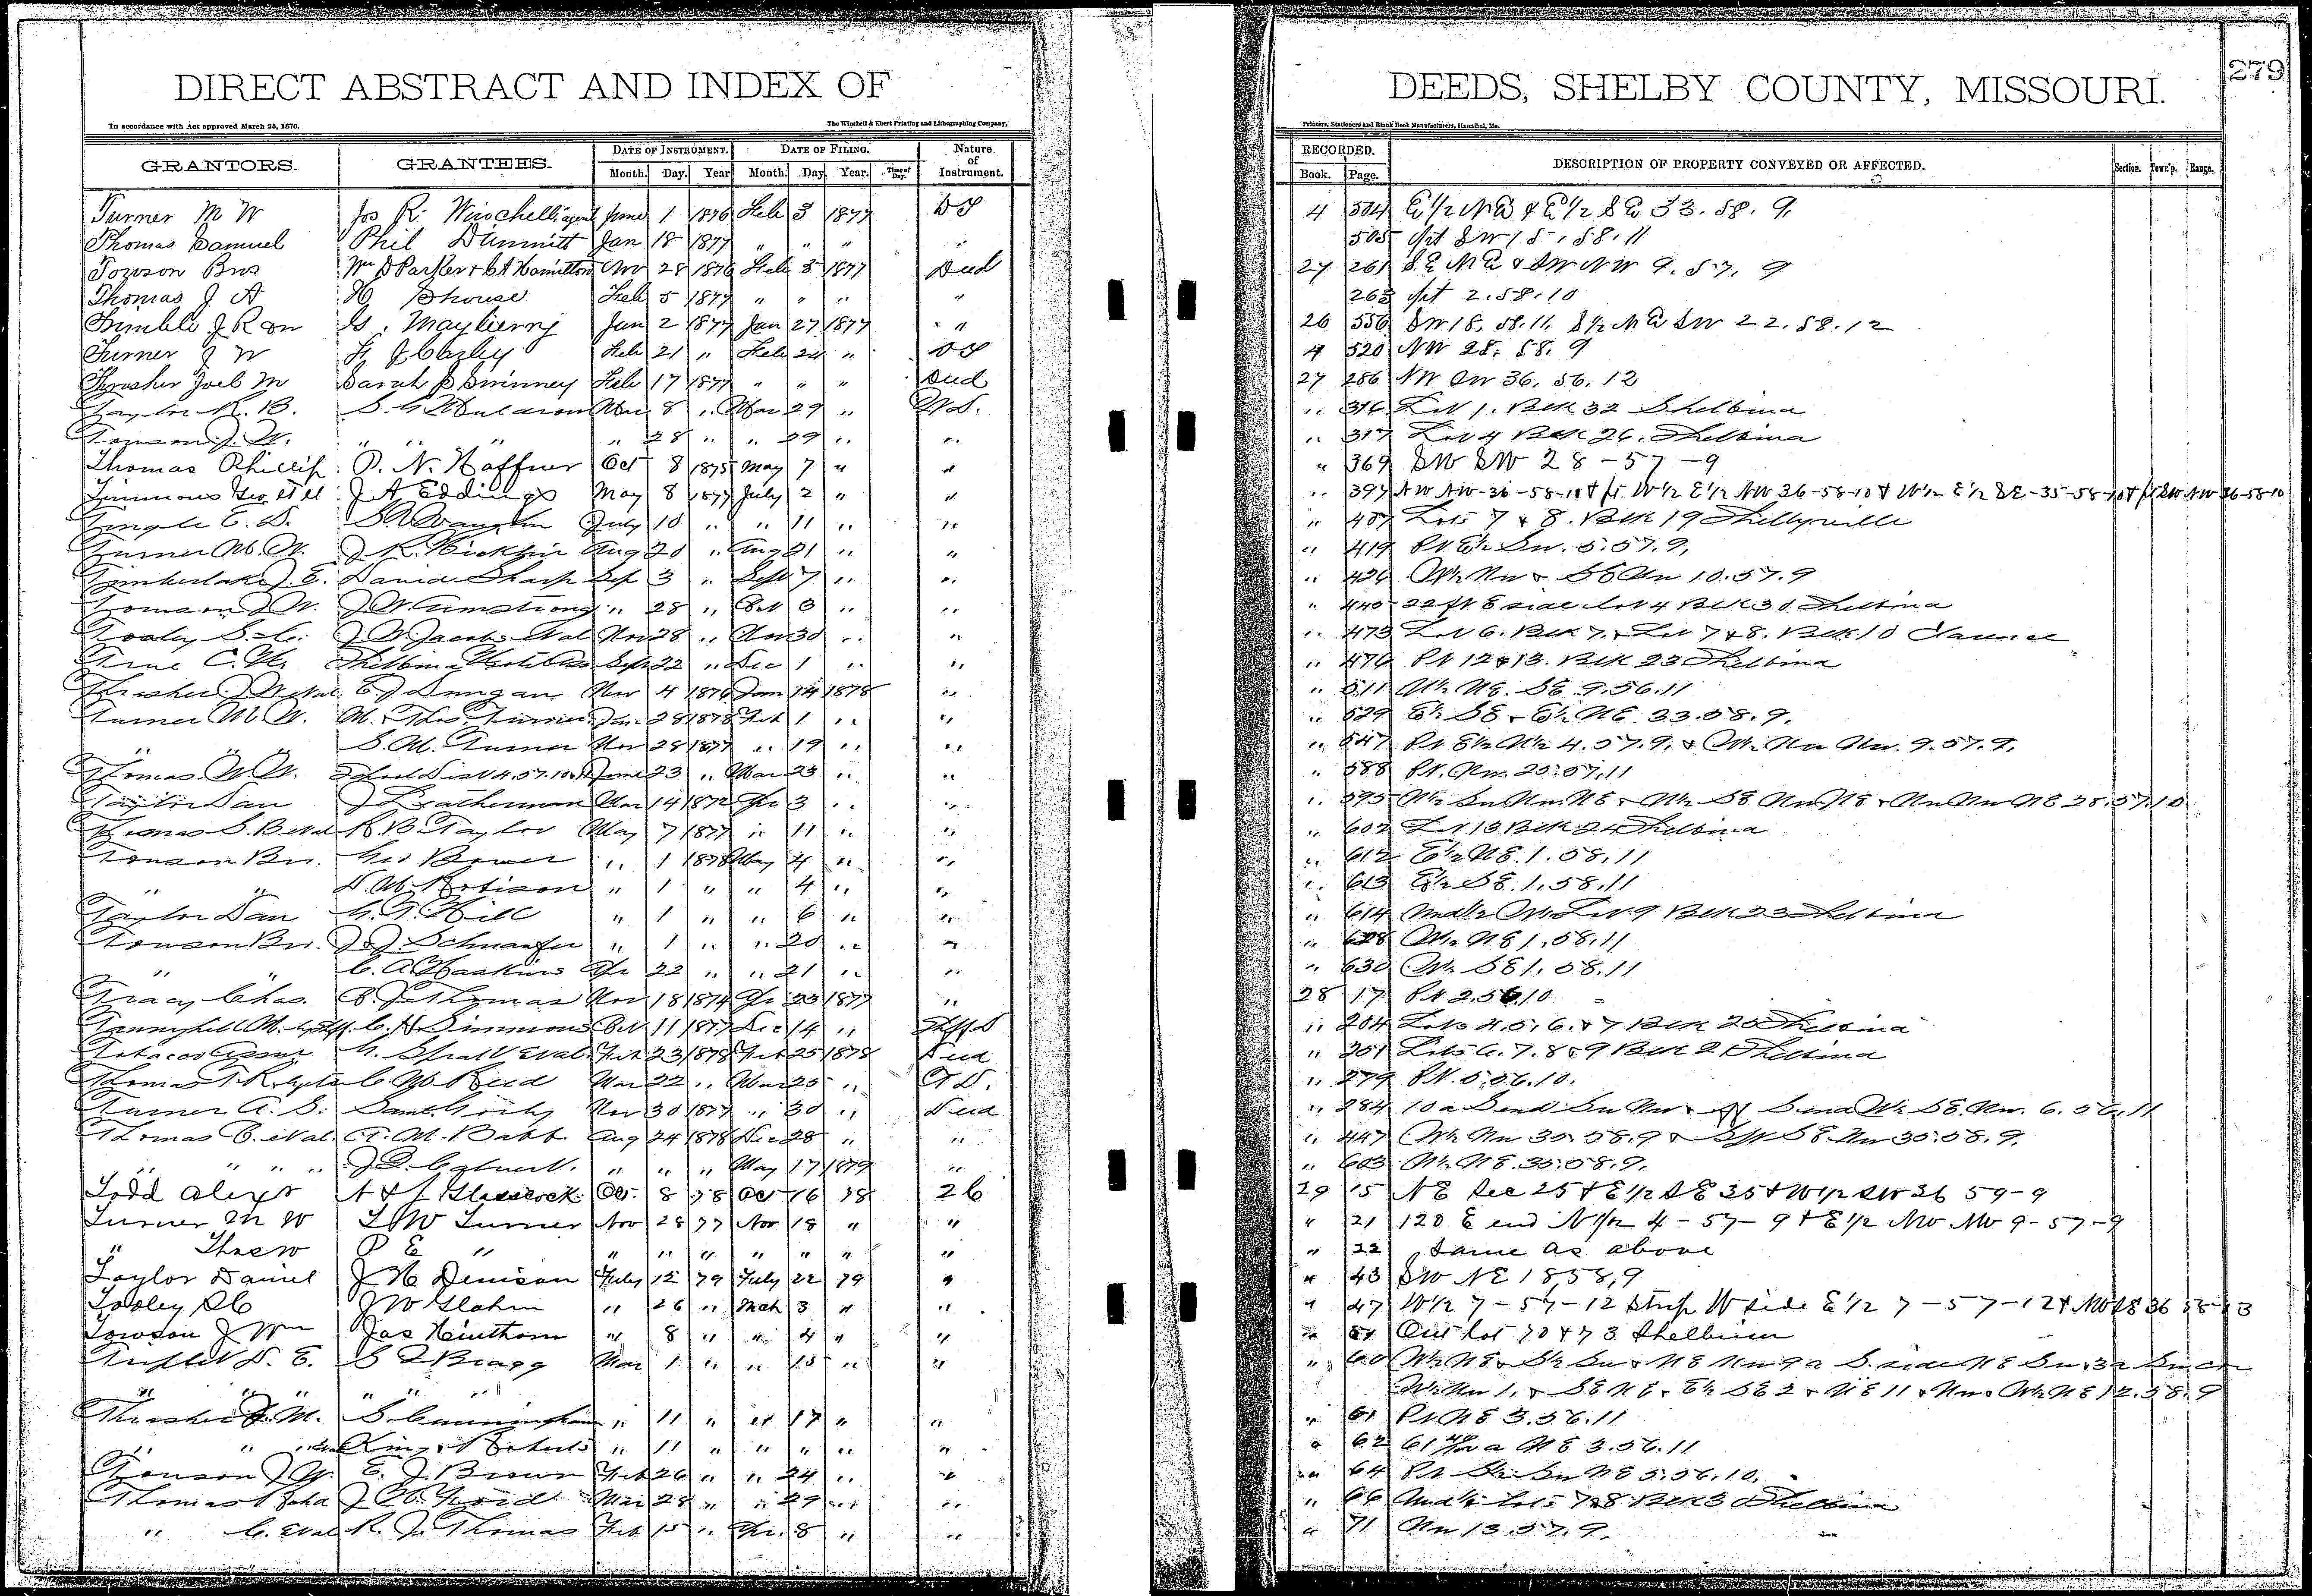 DIRECT ABSTRACT AND INDEX OF DEEDS, SHELBY COUNTY, MISSOURI. 279
In accordance with Act approved March 25, 1870. The Winchell & Ebert Printing and Lithographing Company, Printers, Stationers and Blank Book Manufacturers, Hannibal, Mo.
GRANTORS. GRANTEES. DATE OF INSTRUMENT. DATE OF FILING. Nature of Instrument. RECORDED. DESCRIPTION OF PROPERTY CONVEYED OR AFFECTED. Section. Town'p. Range.
Month. Day. Year Month. Day. Year. Time of Day. Book. Page.
Turner M W Jos R. Winchell agent June 1 1876 Feb 3 1877 DT 4 504 E 1/2 NE & E 1/2 SE 33. 58. 9.
Thomas Samuel Phil Dimmitt Jan 18 1877 " " " " 505 pt SW 15. 58. 11
Towson Bros Wm D Parker & C A Hamilton Nov 28 1876 Feb 5 1877 Deed 27 261 SE NE & SW NW 9. 57. 9
Thomas J A H Shouse Feb 5 1877 " " " " 263 pt 2. 58. 10
Trimble J R G. Mayberry Jan 2 1877 Jan 27 1877 " 26 556 SW 18. 58. 11. S 1/2 NE SW 22. 58. 12
Turner J W Feb 21 " Feb 24 " DT 4 520 NW 28. 58. 9
Thrasher Joel M Sarah Swinney Feb 17 1877 " " " Deed 27 286 NW SW 36. 56. 12
Taylor R. B. Mar 8 " Mar 29 " W.D. " 316 Lot 1. Blk 32 Shelbina
Towson J. W. " " " " 28 " " 29 " " " 317 Lot 4 Blk 26. Shelbina
Thomas Phillip P. N. Haffner Oct 8 1875 May 7 " " " 369 SW SW 28-57-9
Timmons Geo et al J A Eddings May 8 1877 July 2 " " " 397 NW NW-36-58-10 & pt W 1/2 E 1/2 NW 36-58-10 & W 1/2 E 1/2 SE-35-58-10 & pt SW NW 36-58-10
Tingle E. D. July 10 " " 11 " " " 407 Lots 7 & 8. Blk 19 Shelbyville
Turner M. W. J. R. Hicklin Aug 20 " Aug 21 " " " 419 Pt E 1/2 Sw. 5. 57. 9.
Timberlake J. E. David Sharp Sep 3 " Sept 7 " " " 426 W 1/2 Nw & SE Nw 10. 57. 9
Towson J W. J. W. Armstrong " 28 " Oct 3 " " " 445 22 ft E side Lot 4 Blk 30 Shelbina
Tooley S. C. J. W. Jacobs et al Nov 28 " Nov 30 " " " 473 Lot 6. Blk 7. & Lot 7 & 8. Blk 10 Clarence
True C. H. Sept 22 " Dec 1 " " " 476 Pt 12 & 13. Blk 23 Shelbina
Thrasher J. W. et al. E. J. Dungan Nov 4 1876 Jan 14 1878 " " 511 W 1/2 NE. SE 9. 56. 11
Turner M. W. M. & Thos. Turner Jan 28 1878 Feb 1 " " " 529 E 1/2 SE & E 1/2 NE. 33. 58. 9.
" " " S. M. Turner Nov 28 1877 " 19 " " " 547 Pt E 1/2 W 1/2 4. 57. 9. & W 1/2 Nw Nw. 9. 57. 9.
Thomas W. W. School Dist 4. 57. 10 June 23 " Mar 23 " " " 588 Pt. Nw. 25. 57. 11
Taylor Dan J Leatherman Mar 14 1872 Apr 3 " " " 595 W 1/2 Sw Nw NE & W 1/2 SE Nw NE & Nw Nw NE 28. 57. 10
Thomas S. B. et al R. B. Taylor May 7 1877 " 11 " " " 602 Lot 13 Blk 24 Shelbina
Towson Br. Geo Bower " 1 1878 May 4 " " " 612 E 1/2 NE. 1. 58. 11
" " D. M. Robison " 1 " " 4 " " " 613 E 1/2 SE. 1. 58. 11
Taylor Dan G. T. Hill " 1 " " 6 " " " 614 Und 1/2 W 1/2 Lot 9 Blk 23 Shelbina
Towson Br. " 1 " " 20 " " " 628 W 1/2 NE 1. 58. 11
" " C. A. Haskins Apr 22 " " 21 " " " 630 W 1/2 SE 1. 58. 11
Tracy Chas. B. J. Thomas Nov 18 1874 Apr 23 1877 " 28 17 Pt 2. 56. 10
Tannyhill M. C. H. Simmons Oct 11 1877 Dec 14 " Shff D " 204 Lots 4. 5. 6. & 7 Blk 20 Shelbina
Tobacco Assn et al. Feb 23 1878 Feb 25 1878 Deed " 251 Lots 6. 7. 8 & 9 Blk 2 Shelbina
Thomas T. R. C. M. Reed Mar 22 " Mar 25 " T D. " 279 Pt. 5. 56. 10.
Turner A. S. Saml Gorby Nov 30 1877 " 30 " Deed " 284 10 a S end Sw Nw & S end W 1/2 SE. Nw. 6. 56. 11
Thomas C. et al. T. M. Babb. Aug 24 1878 Dec 28 " " " 447 W 1/2 Nw 35. 58. 9 & SE Nw 35. 58. 9.
" " " " J. D. Calvert. " " " May 17 1879 " " 603 W 1/2 NE. 35. 58. 9.
Todd Alexr N & J Glasscock Oct. 8 78 Oct 16 78 26 29 15 NE Sec 25 & E 1/2 SE 35 & W 1/2 SW 36 59-9
Turner M W T W Turner Nov 28 77 Nov 18 " " " 21 120 E end N 1/2 4-57-9 & E 1/2 NW NW 9-57-9
" Thos W P E " " " " " " " " " 22 Same as above
Taylor Daniel J H Denison July 12 79 July 22 79 " " 43 SW NE 18, 58, 9
Tooley S C J W Glahn " 26 " Mch 3 " " " 47 W 1/2 7-57-12 Strip W side E 1/2 7-57-12 & NW SE 36 58-13
Towson J Wm Jas Hinthorn " 8 " " 4 " " " 51 Out lot 70 & 73 Shelbina
Triplett D. E. Bragg Mar 1 " " 15 " " " 60 W 1/2 NE & S 1/2 Sw & NE Nw 9 a S. side NE Sw & 3 a Sw cor
" " " " " " W 1/2 Nw 1. & SE NE & E 1/2 SE 2 & NE 11 & Nw & W 1/2 NE 12. 58. 9
Thrasher J. M. S Cunningham " 11 " " 17 " " " 61 Pt NE 3. 56. 11
" " King & Roberts " 11 " " " " " " 62 61 a NE 3. 56. 11
Towson J W. E. J. Brown Feb 26 " " 24 " " " 64 Pt S 1/2 Sw NE 5. 56. 10.
Thomas J C. Ford Mar 28 " " 29 " " " 66 Und 1/2 Lots 7 & 8 Blk 3 Shelbina
" C. et al R. J. Thomas Feb 15 " Apr. 8 " " " 71 Nw 13. 57. 9.